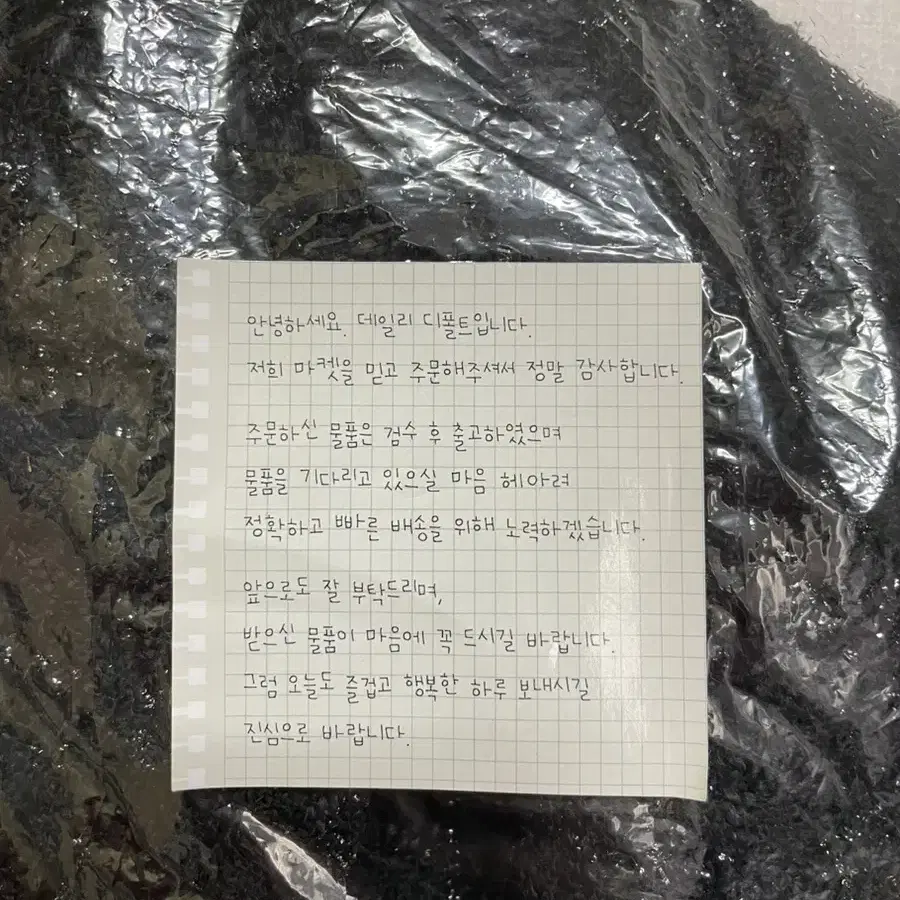 안녕하세요. 데일리 디폴트입니다.
저희 마켓을 믿고 주문해주셔서 정말 감사합니다.
주문하신 물품은 검수 후 출고하였으며
물품을 기다리고 있으실 마음 헤아려
정확하고 빠른 배송을 위해 노력하겠습니다.
앞으로도 잘 부탁드리며,
받으신 물품이 마음에 꼭 드시길 바랍니다.
그럼 오늘도 즐겁고 행복한 하루 보내시길
진심으로 바랍니다.